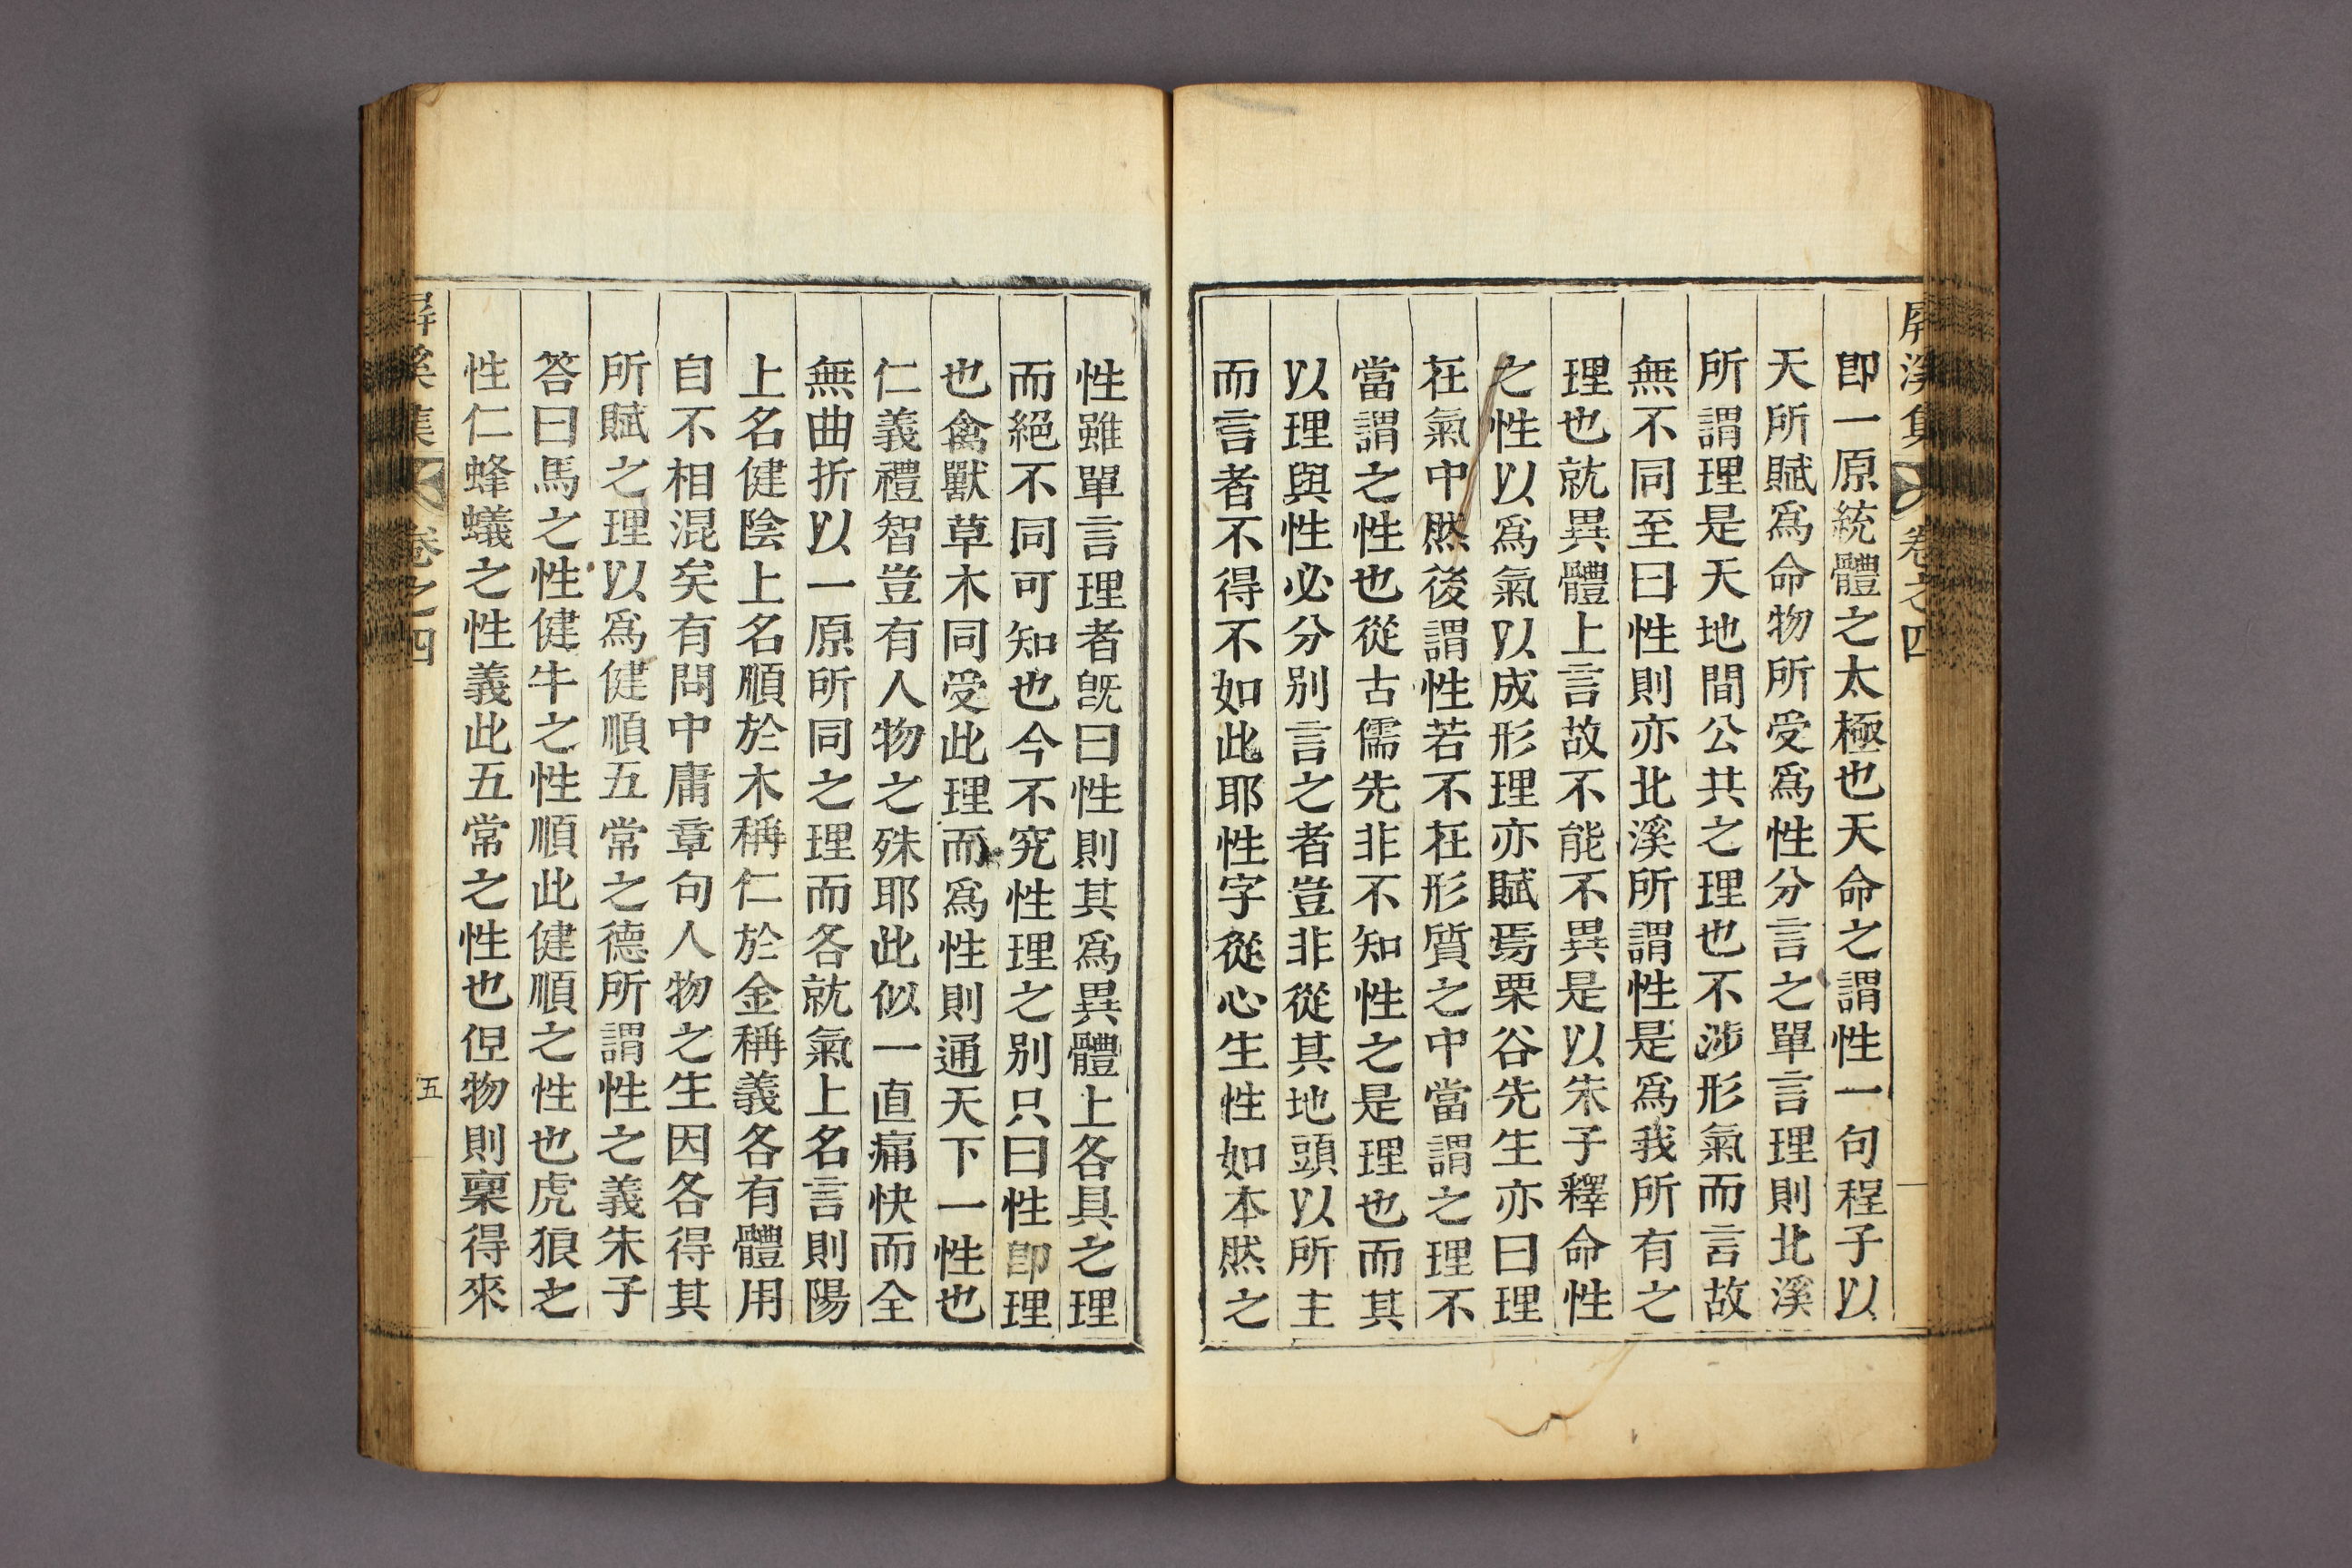 屏溪集 卷之四
卽一原統體之太極也天命之謂性一句程子以
天所賦爲命物所受爲性分言之單言理則北溪
所謂理是天地間公共之理也不涉形氣而言故
無不同至曰性則亦北溪所謂性是爲我所有之
理也就異體上言故不能不異是以朱子釋命性
之性以爲氣以成形理亦賦焉栗谷先生亦曰理
在氣中然後謂性若不在形質之中當謂之理不
當謂之性也從古儒先非不知性之是理也而其
以理與性必分別言之者豈非從其地頭以所主
而言者不得不如此耶性字從心生性如本然之
性雖單言理者旣曰性則其爲異體上各具之理
而絕不同可知也今不究性理之別只曰性卽理
也禽獸草木同受此理而爲性則通天下一性也
仁義禮智豈有人物之殊耶此似一直痛快而全
無曲折以一原所同之理而各就氣上名言則陽
上名健陰上名順於木稱仁於金稱義各有體用
自不相混矣有問中庸章句人物之生因各得其
所賦之理以爲健順五常之德所謂性之義朱子
答曰馬之性健牛之性順此健順之性也虎狼之
性仁蜂蟻之性義此五常之性也但物則稟得來
屏溪集 卷之四 五